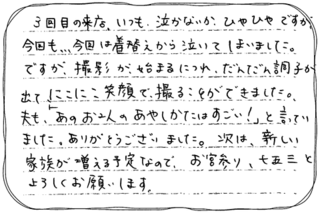 3回目の来店、いつも、泣かないか、ひやひやですが、
今回も、、、今回は着替えから泣いてしまいました。
ですが、撮影が始まるにつれ、だんだん調子が
出てにこにこ笑顔で、撮ることができました。
夫も、「あのお二人のあやしかたはすごい!」と言ってい
ました。ありがとうございました。次は、新しい
家族が増える予定なので、お宮参り、七五三と
よろしくお願いします。